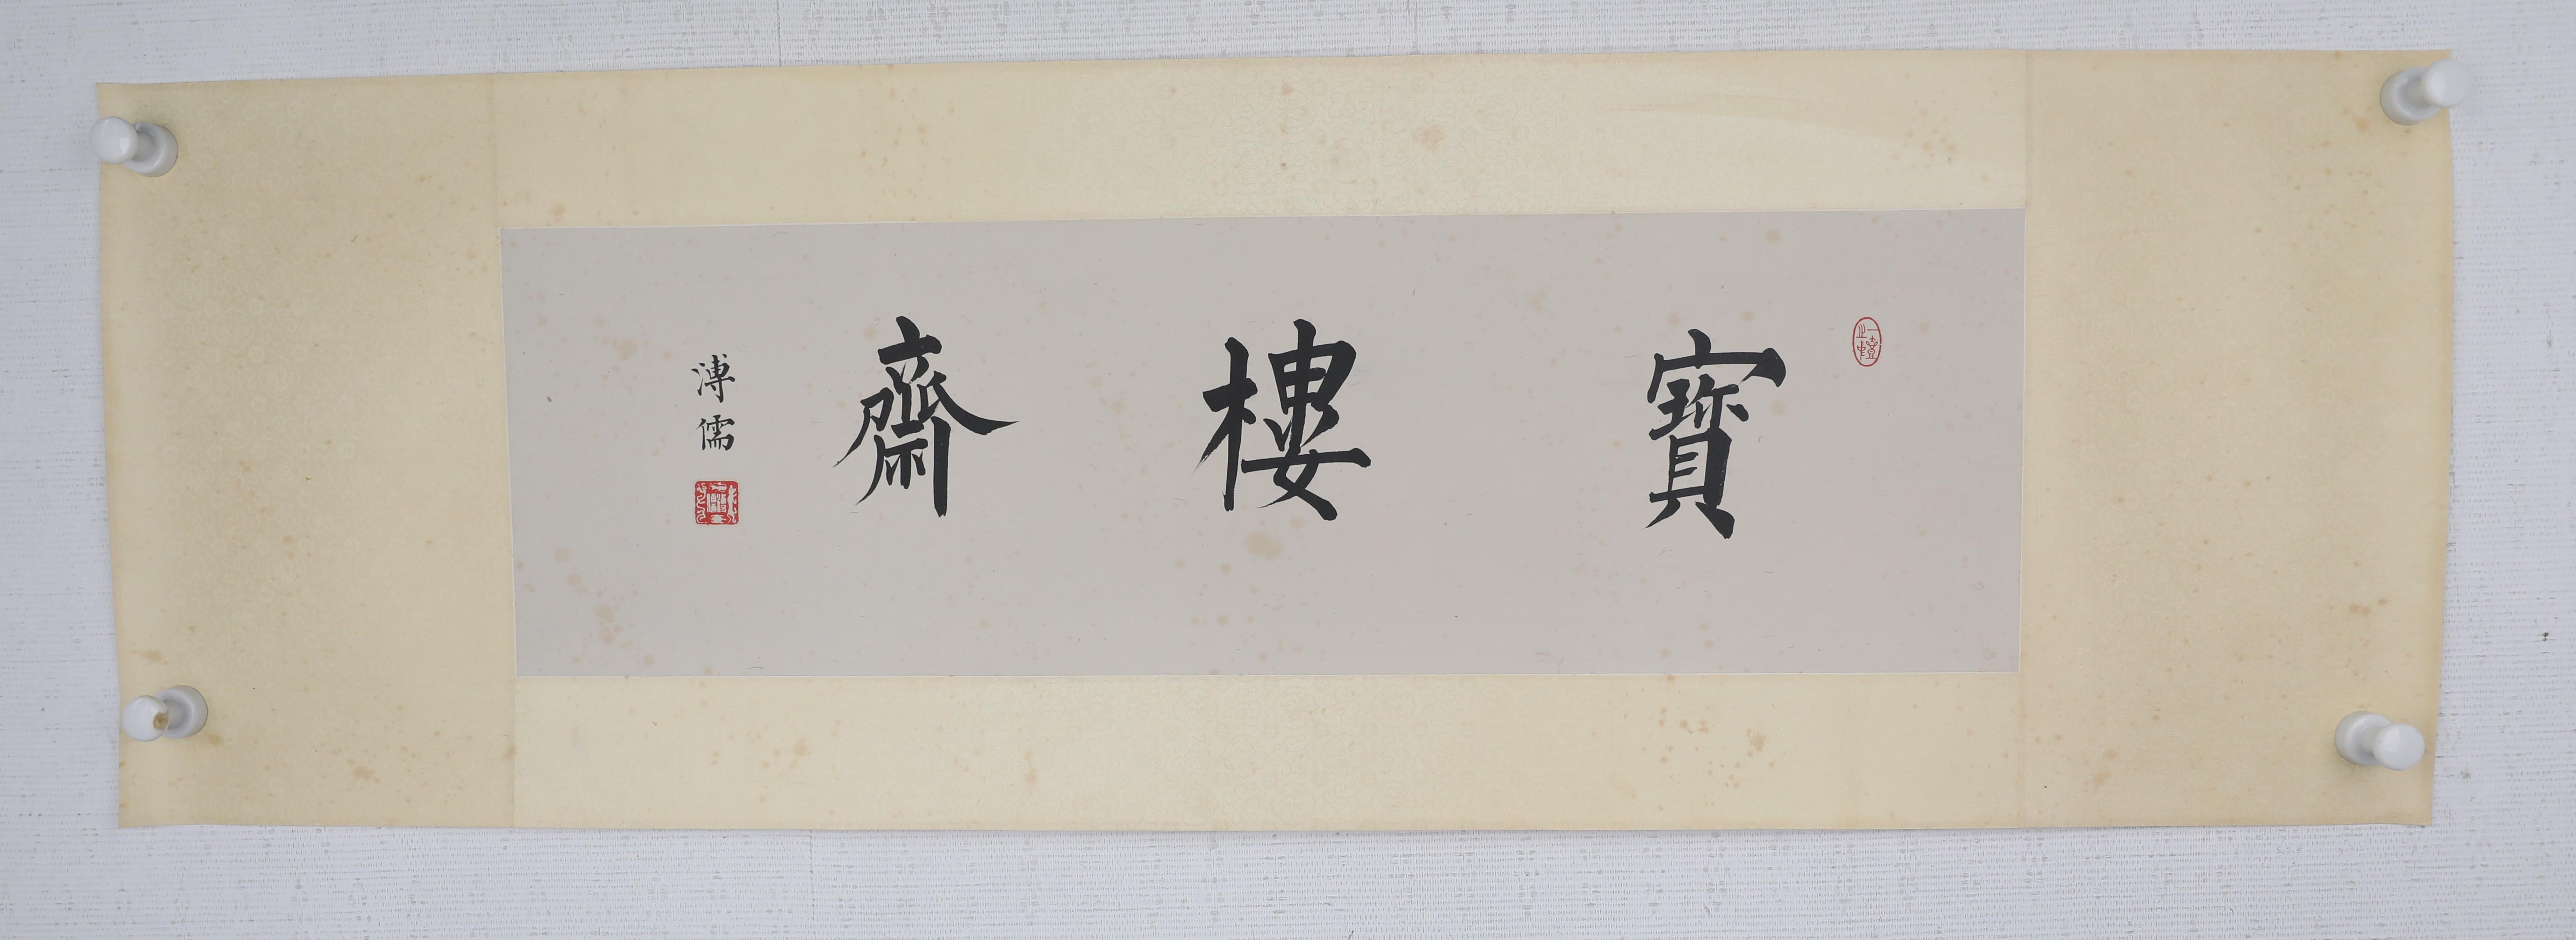 寶樓齋
溥儒